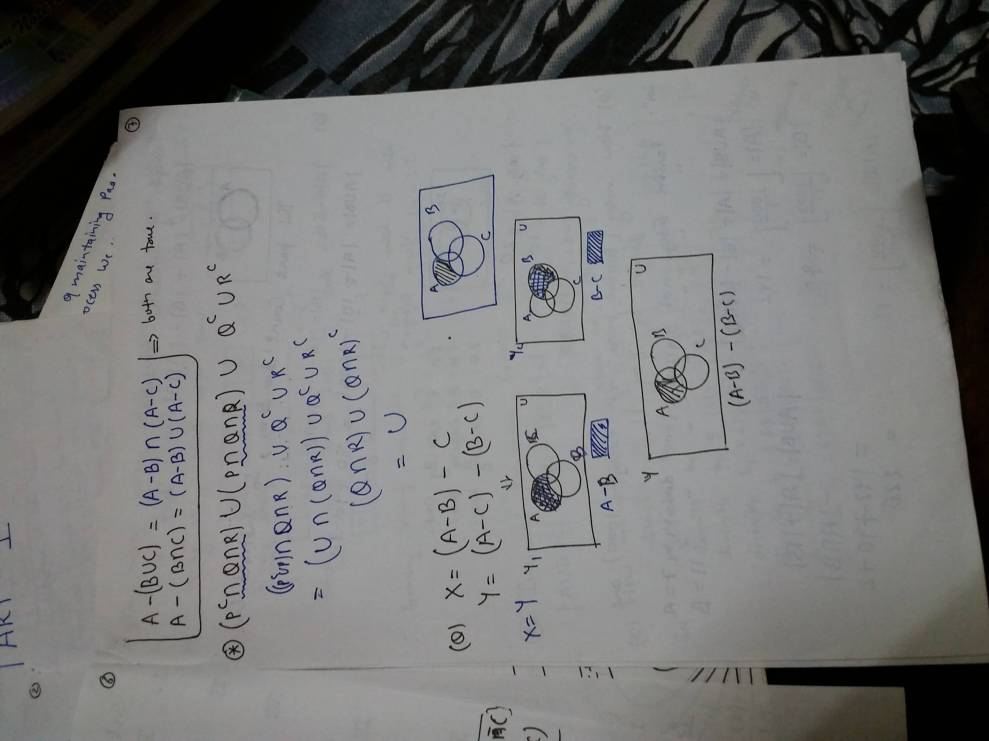 PART I
q maintaining Pro.
ocess we..
7
A-(B∪C) = (A-B)∩(A-C)
A-(B∩C) = (A-B)∪(A-C)
⇒ both are true.
(*) (P^c∩Q∩R)∪(P∩Q∩R) ∪ Q^c∪R^c
(P^c∪P)∩Q∩R) ∪ Q^c∪R^c
= (U∩(Q∩R))∪Q^c∪R^c
(Q∩R)∪(Q∩R)^c
= U
A B C
(Q) X = (A-B) - C
Y = (A-C) - (B-C)
X=Y Y1
A U
A-B
A B C U
B-C
Y
A B C U
(A-B) - (B-C)